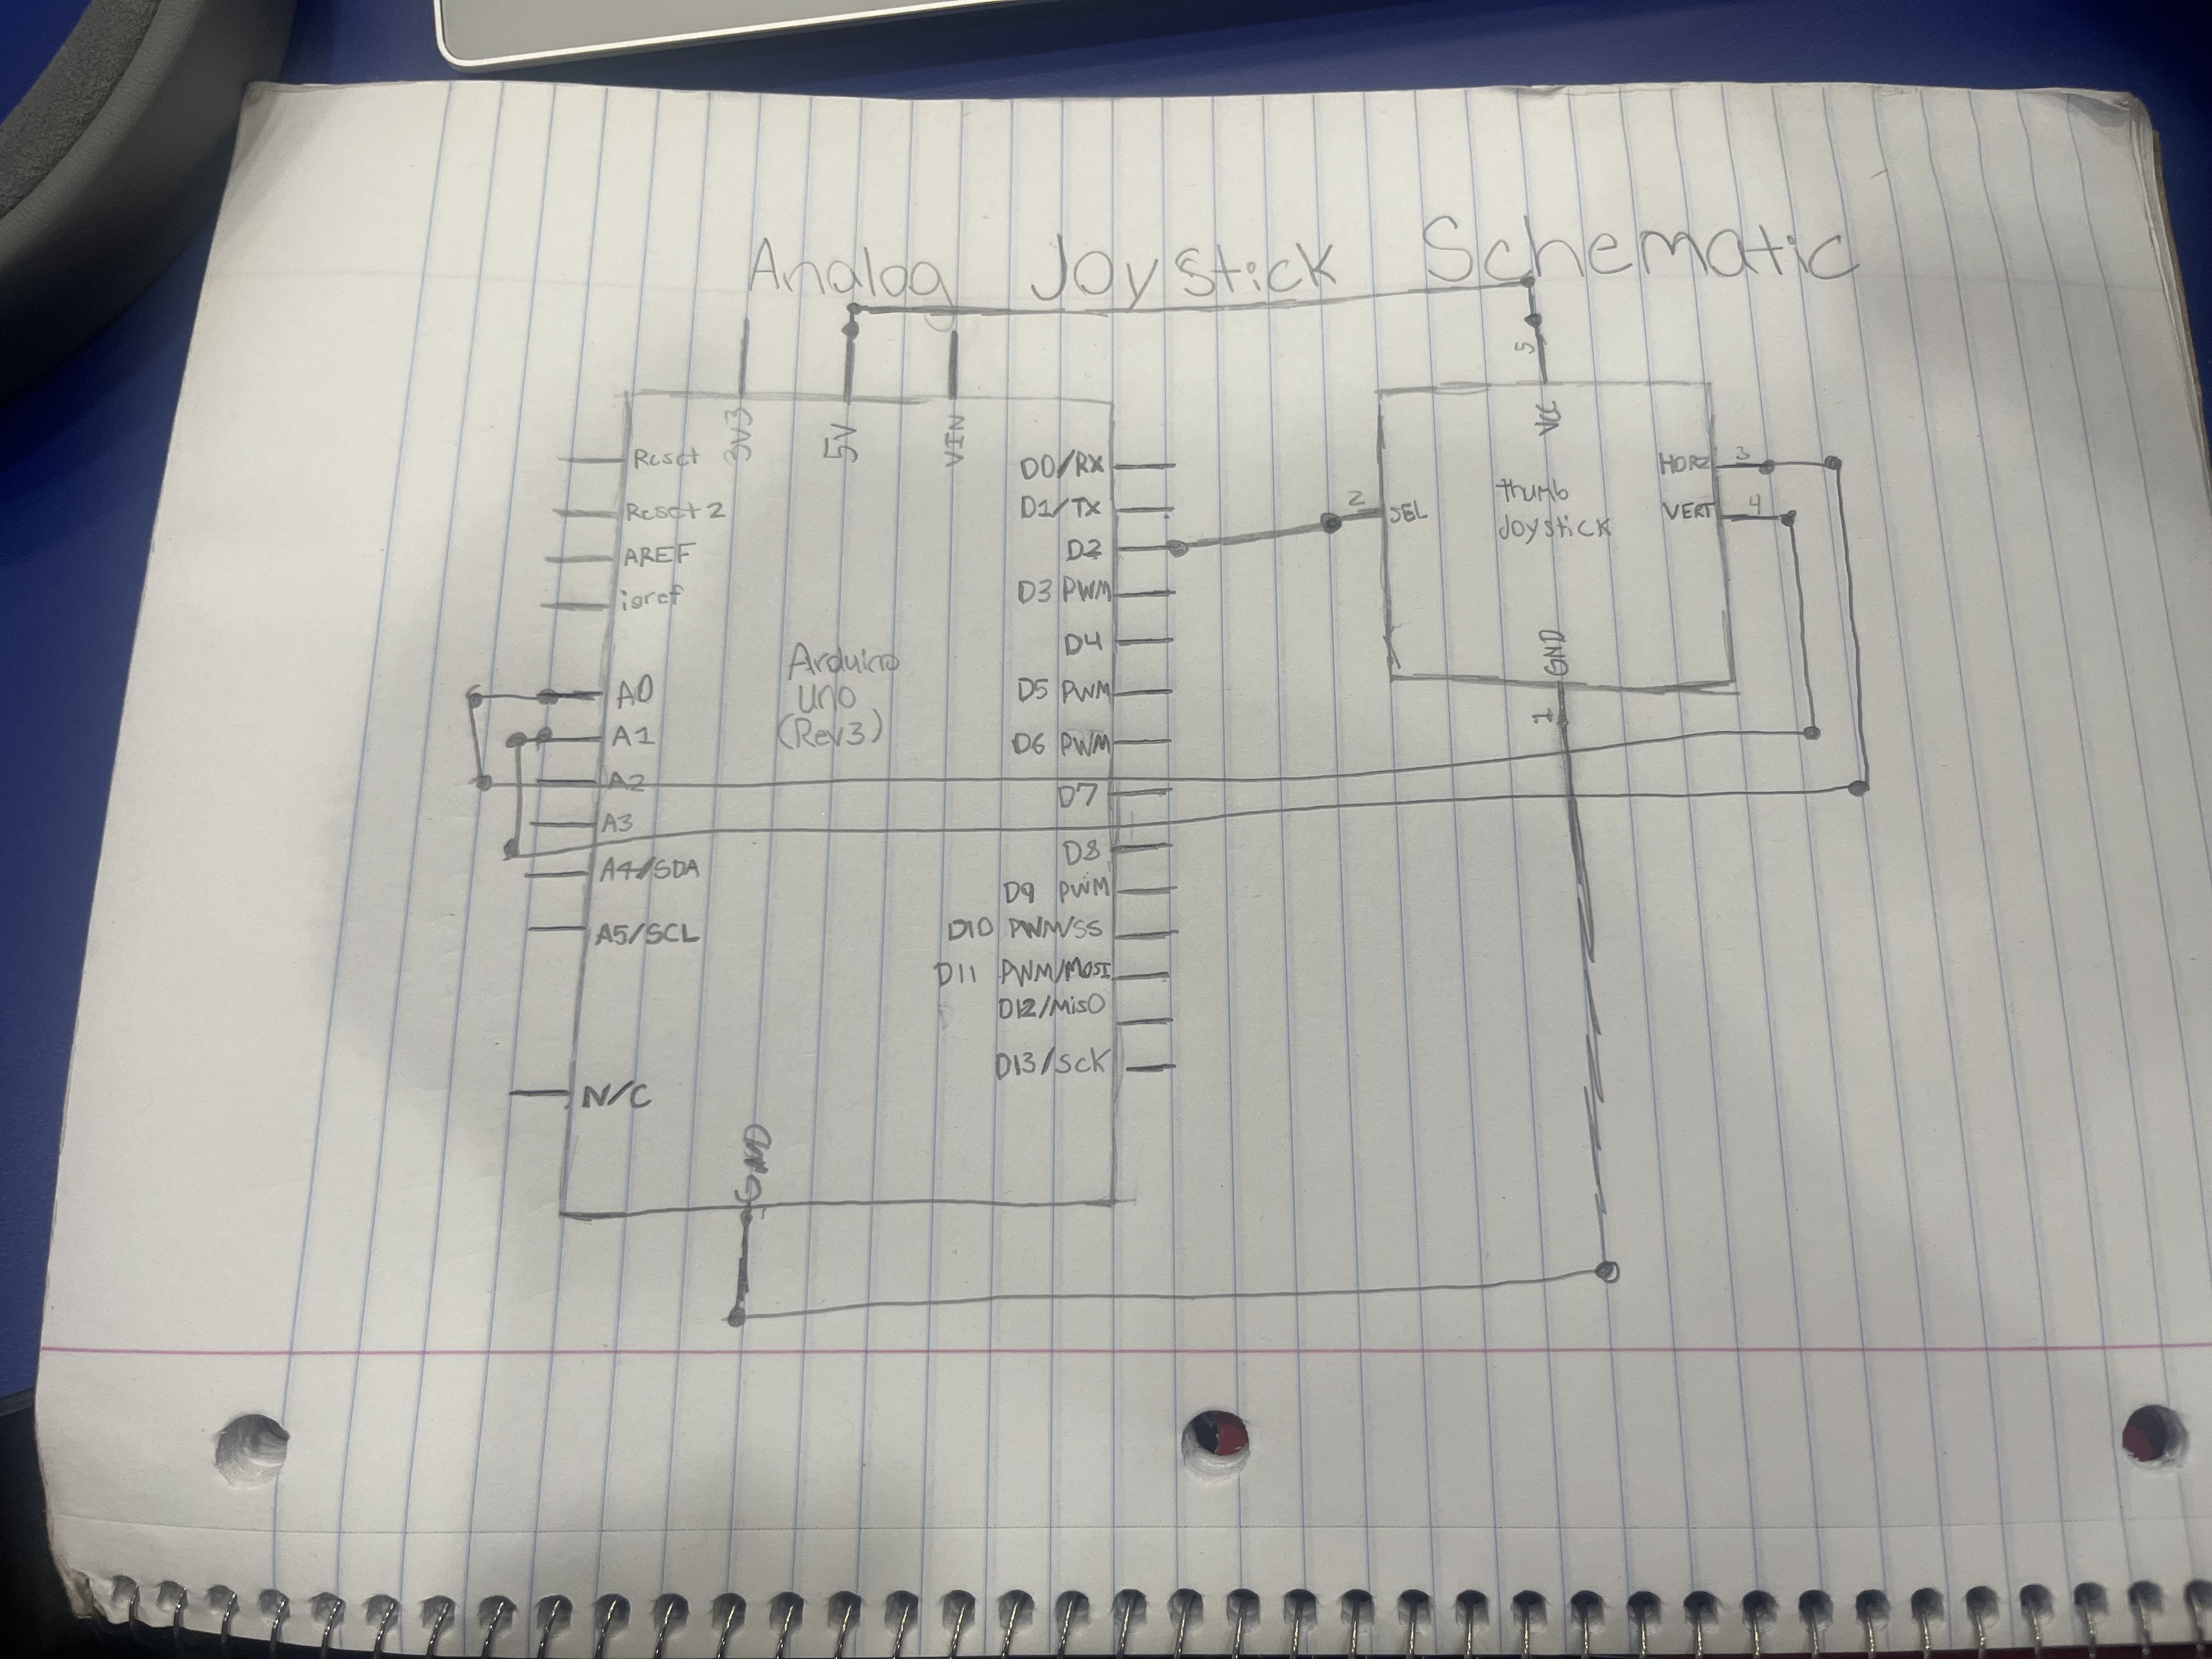 Analog Joystick Schematic
3V3
5V
VIN
Reset
Reset 2
AREF
ioref
A0
A1
A2
A3
A4/SDA
A5/SCL
N/C
Arduino
Uno
(Rev3)
D0/RX
D1/TX
D2
D3 PWM
D4
D5 PWM
D6 PWM
D7
D8
D9 PWM
D10 PWM/SS
D11 PWM/MOSI
D12/MISO
D13/SCK
GND
5
2
SEL
thumb
Joystick
HORZ
3
VERT
4
GND